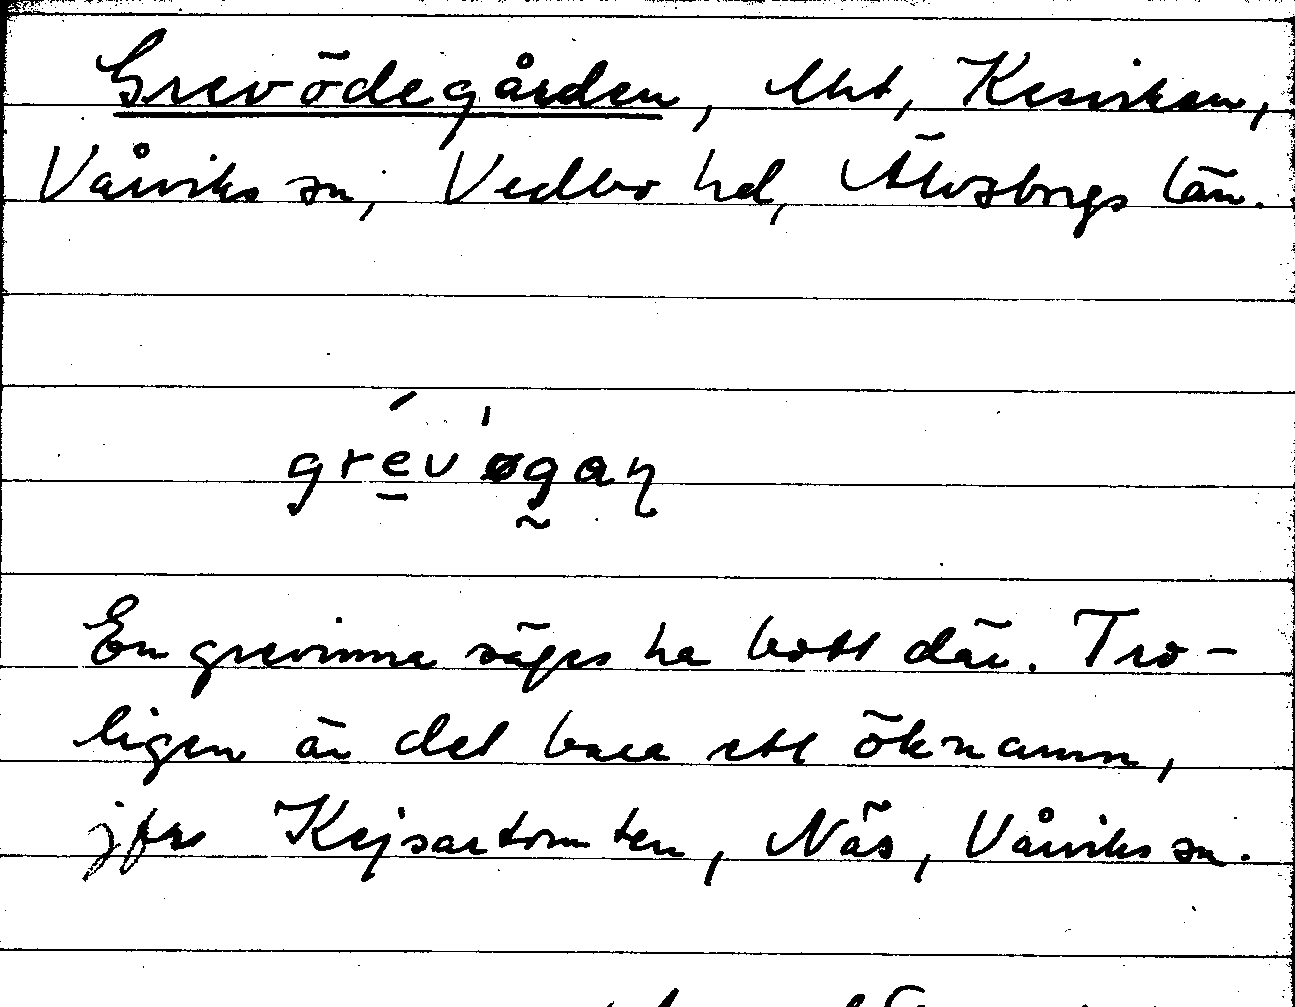 Grevödegården, lht, Kesviken,
Vårviks sn, Vedbo hd, Älvsborgs län.
grévøgan
En grevinna säges ha bott där. Tro-
ligen är det bara ett öknamn,
jfr Kejsartomten, Näs, Vårviks sn.